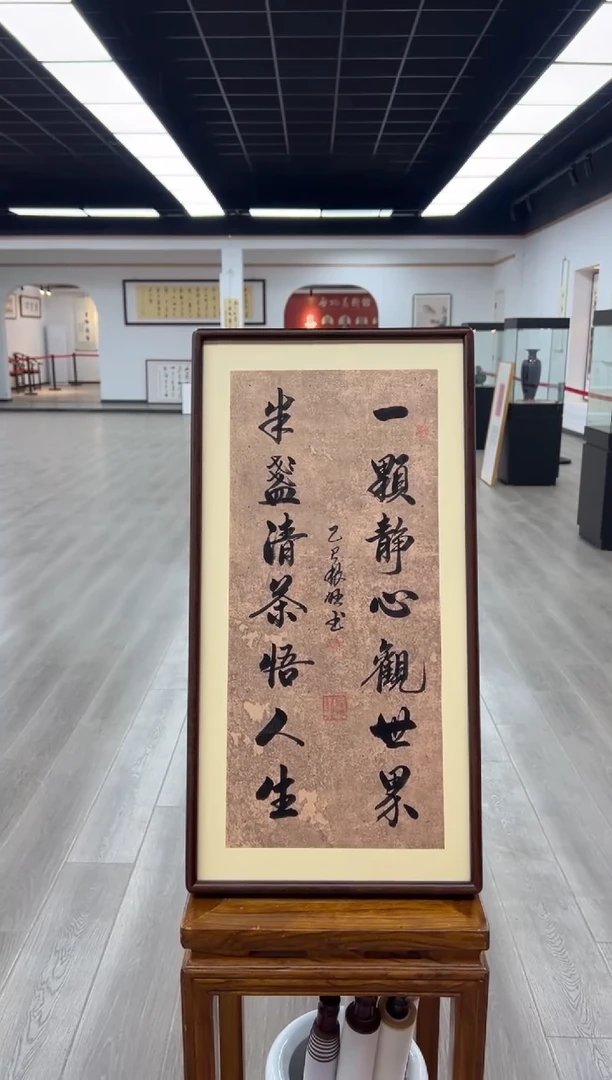 一顆静心觀世界
半盞清茶悟人生
乙巳振旺书